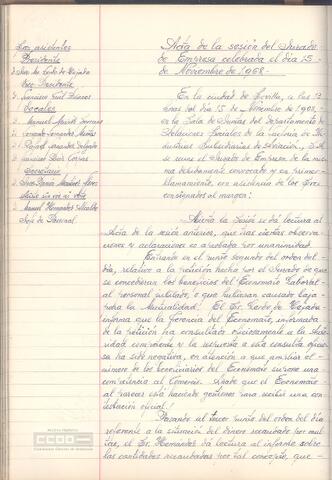 Sres. asistentes
Presidente
Vice-Presidente
Vocales
D. Manuel
D. Fernando Fernández
D. Rafael Fernández Delgado
Secretario
Asiste sin voz ni voto
D. Manuel Hernández
Jefe de Personal
Acta de la sesión del Jurado
de Empresa celebrada el día 15
de Noviembre de 1968.-
En la ciudad de Sevilla, a las 12
horas del día 15 de Noviembre de 1968,
en la Sala de Juntas del Departamento de
Relaciones Sociales de la Factoría de In-
dustrias Subsidiarias de Aviación, S.A.
se reune el Jurado de Empresa de la mis-
ma debidamente convocado y en primer
llamamiento, con asistencia de los Sres.
consignados al margen:
Abierta la sesión se dá lectura al
Acta de la sesión anterior, que tras ciertas observa-
ciones y aclaraciones es aprobada por unanimidad.
Entrando en el punto segundo del orden del
día, relativo a la petición hecha por el Jurado de que
se concedieran los beneficios del Economato Laboral
al personal jubilado, o que hubieran causado baja
por la Mutualidad, el Sr. Pardo de Tejada
informa que la Gerencia del Economato, informada
de la petición ha consultado oficiosamente a la Auto-
ridad competente y la respuesta a esta consulta oficio-
sa ha sido negativa, en atención a que ampliar el
número de los beneficiarios del Economato supone una
competencia al Comercio. Añade que el Economato
al parecer está haciendo gestiones para recibir una con-
testación oficial.
Pasando al tercer punto del orden del día
referente a la situación del dinero recaudado por mul-
tas, el Sr. Hernández da lectura al informe sobre
las cantidades recaudadas por tal concepto, que-
ccoo